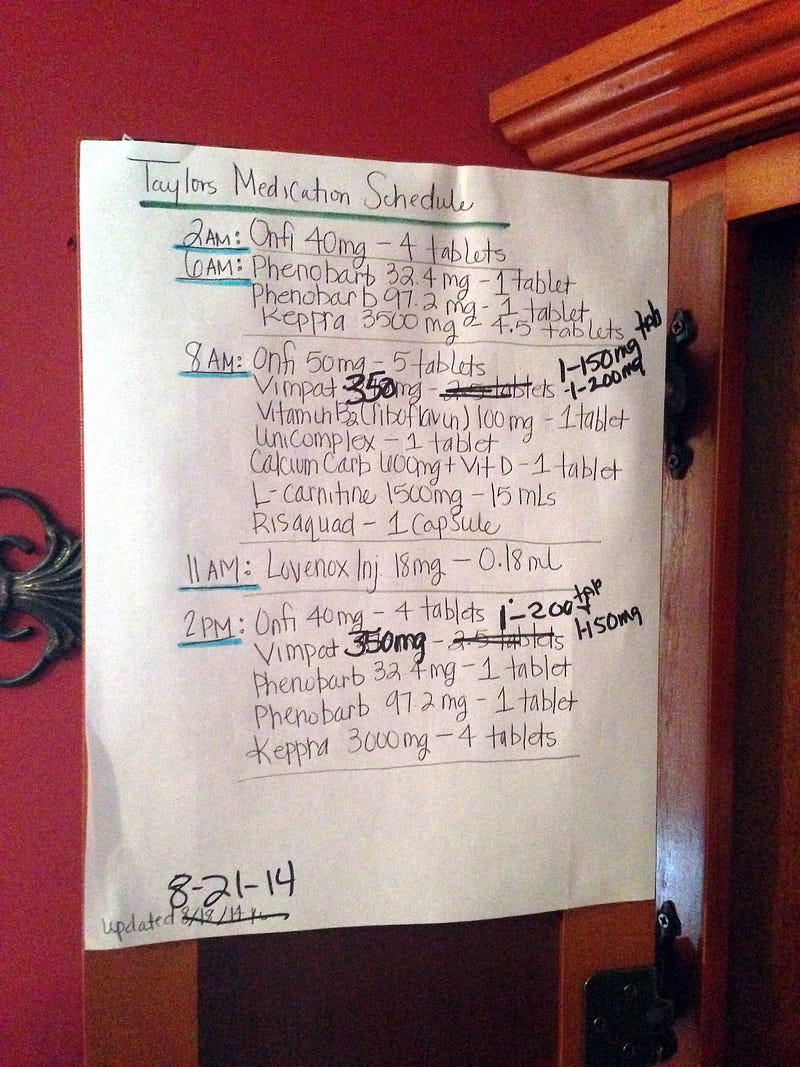 Taylors Medication Schedule
2AM: Onfi 40mg - 4 tablets
6AM: Phenobarb 32.4 mg - 1 tablet
Phenobarb 97.2 mg - 1 tablet
Keppra 3500 mg - 4.5 tablets
8AM: Onfi 50mg - 5 tablets
1-150mg tab
Vimpat 350mg - 2.5 tablets -1-200mg
Vitamin B2 (riboflavin) 100mg - 1 tablet
Unicomplex - 1 tablet
Calcium Carb 600mg + Vit D - 1 tablet
L-carnitine 1500mg - 15 mLs
Risaquad - 1 capsule
11AM: Lovenox Inj. 18mg - 0.18ml
2PM: Onfi 40mg - 4 tablets 1-200 tab
Vimpat 350mg - 2.5 tablets 1-150mg
Phenobarb 32.4mg - 1 tablet
Phenobarb 97.2 mg - 1 tablet
Keppra 3000mg - 4 tablets
8-21-14
updated 8/18/14